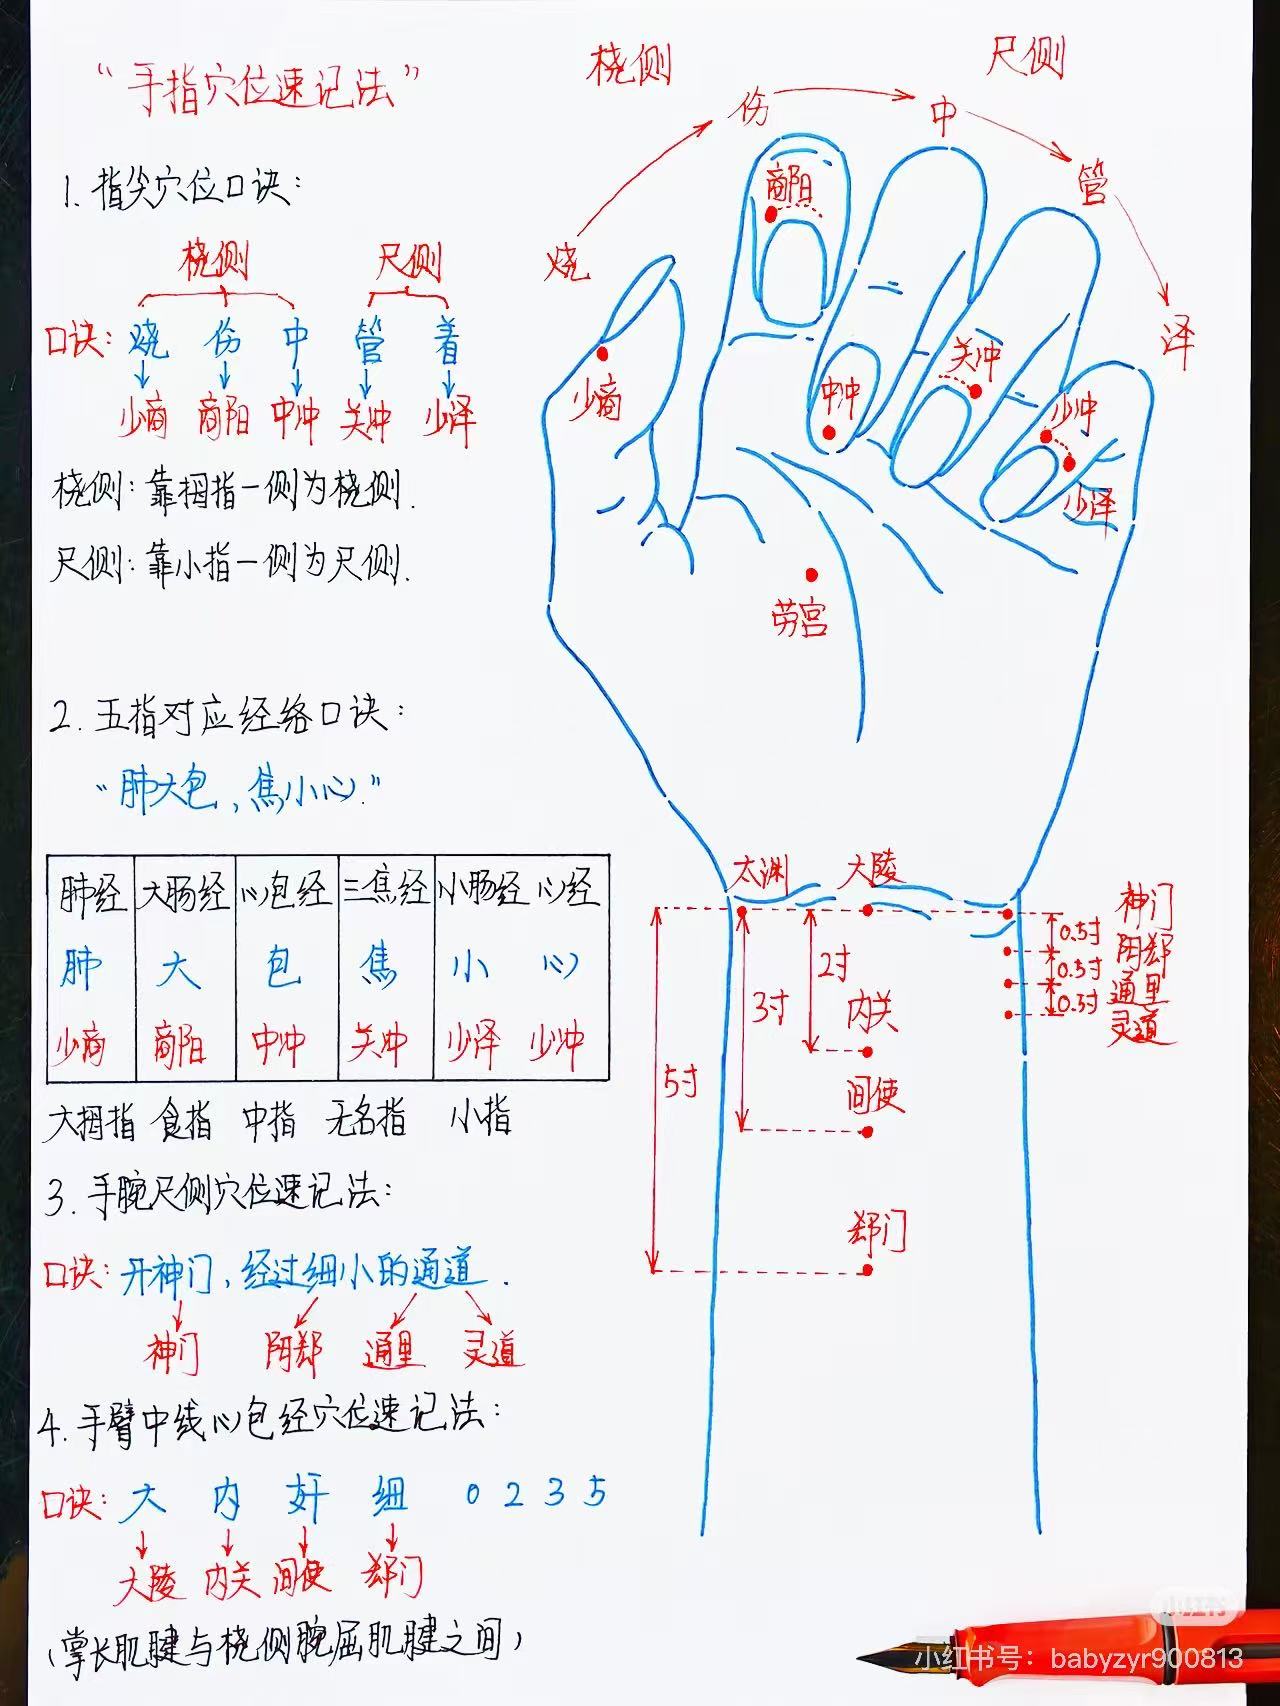 “手指穴位速记法”
1. 指尖穴位口诀：
桡侧 尺侧
口诀：烧 伤 中 管 着
少商 商阳 中冲 关冲 少泽
桡侧：靠拇指一侧为桡侧.
尺侧：靠小指一侧为尺侧.
2. 五指对应经络口诀：
“肺大包，焦小心.”
肺经 大肠经 心包经 三焦经 小肠经 心经
肺 大 包 焦 小 心
少商 商阳 中冲 关冲 少泽 少冲
大拇指 食指 中指 无名指 小指
3. 手腕尺侧穴位速记法：
口诀：开神门，经过细小的通道.
神门 阴郄 通里 灵道
4. 手臂中线心包经穴位速记法：
口诀：大 内 奸 细 0 2 3 5
大陵 内关 间使 郄门
(掌长肌腱与桡侧腕屈肌腱之间)
桡侧 尺侧
烧 伤 中 管 泽
商阳
少商
中冲
关冲
少冲
少泽
劳宫
太渊 大陵
神门
0.5寸
阴郄
0.5寸
通里
0.5寸
灵道
2寸
3寸
内关
5寸
间使
郄门
小红书
小红书号：babyzyr900813